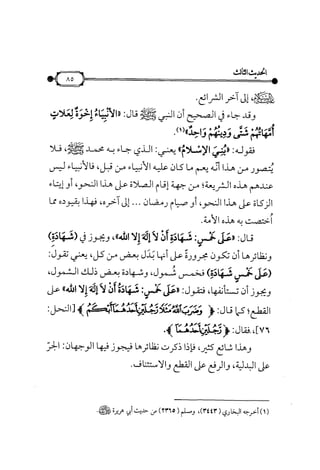 الحديث الثالث
٨٥
ﷺ، إلى آخر الشرائع.
وقد جاء في الصحيح أن النبي ﷺ قال: «الأَنْبِيَاءُ إِخْوَةٌ لِعَلَّاتٍ
أُمَّهَاتُهُمْ شَتَّى وَدِينُهُمْ وَاحِدٌ»(١).
فقوله: «بُنِيَ الإِسْلَامُ» يعني: الذي جاء به محمد ﷺ، فلا
يُتصور من هذا أنَّه يعم ما كان عليه الأنبياء من قبل، فالأنبياء ليس
عندهم هذه الشريعة؛ من جهة إقام الصلاة على هذا النحو، أو إيتاء
الزكاة على هذا النحو، أو صيام رمضان ... إلى آخره، فهذا بقيوده مما
اُختصت به هذه الأمة.
قال: «عَلَى خَمْسٍ: شَهَادَةِ أَنْ لاَ إِلَهَ إِلا الله»، ويجوز في (شَهَادَةِ)
ونظائرها أن تكون مجرورةً على أنها بَدَل بعض من كل، يعني تقول:
(عَلَى خَمْسٍ شَهَادَةِ) فخمس شُمول، وشهادة بعض ذلك الشمول،
ويجوز أن تستأنفها، فتقول: «عَلَى خَمْسٍ: شَهَادَةُ أَنْ لاَ إِلَهَ إِلا الله» على
القطع؛ كما قال: ﴿ وَضَرَبَ اللَّهُ مَثَلًا رَجُلَيْنِ أَحَدُهُمَا أَبْكَمُ ﴾ [النحل:
٧٦]، فقال: ﴿ رَجُلَيْنِ أَحَدُهُمَا ﴾.
وهذا شائع كثير، فإذا ذكرت نظائرها فيجوز فيها الوجهان: الجرّ
على البدلية، والرفع على القطع والاستئناف.
(١) أخرجه البخاري (٣٤٤٣)، ومسلم (٢٣٦٥) من حديث أبي هريرة ﷺ.